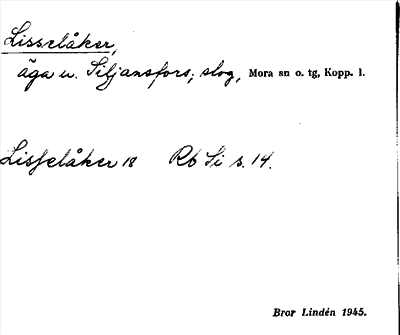 Lisselåker,
äga u. Siljansfors; slog, Mora sn o. tg, Kopp. l.
Lisselåker 18 Rb Si s. 14.
Bror Lindén 1945.